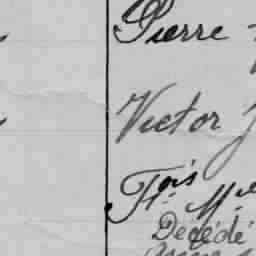 Pierre
Victor J
Fois Mie
Décédé